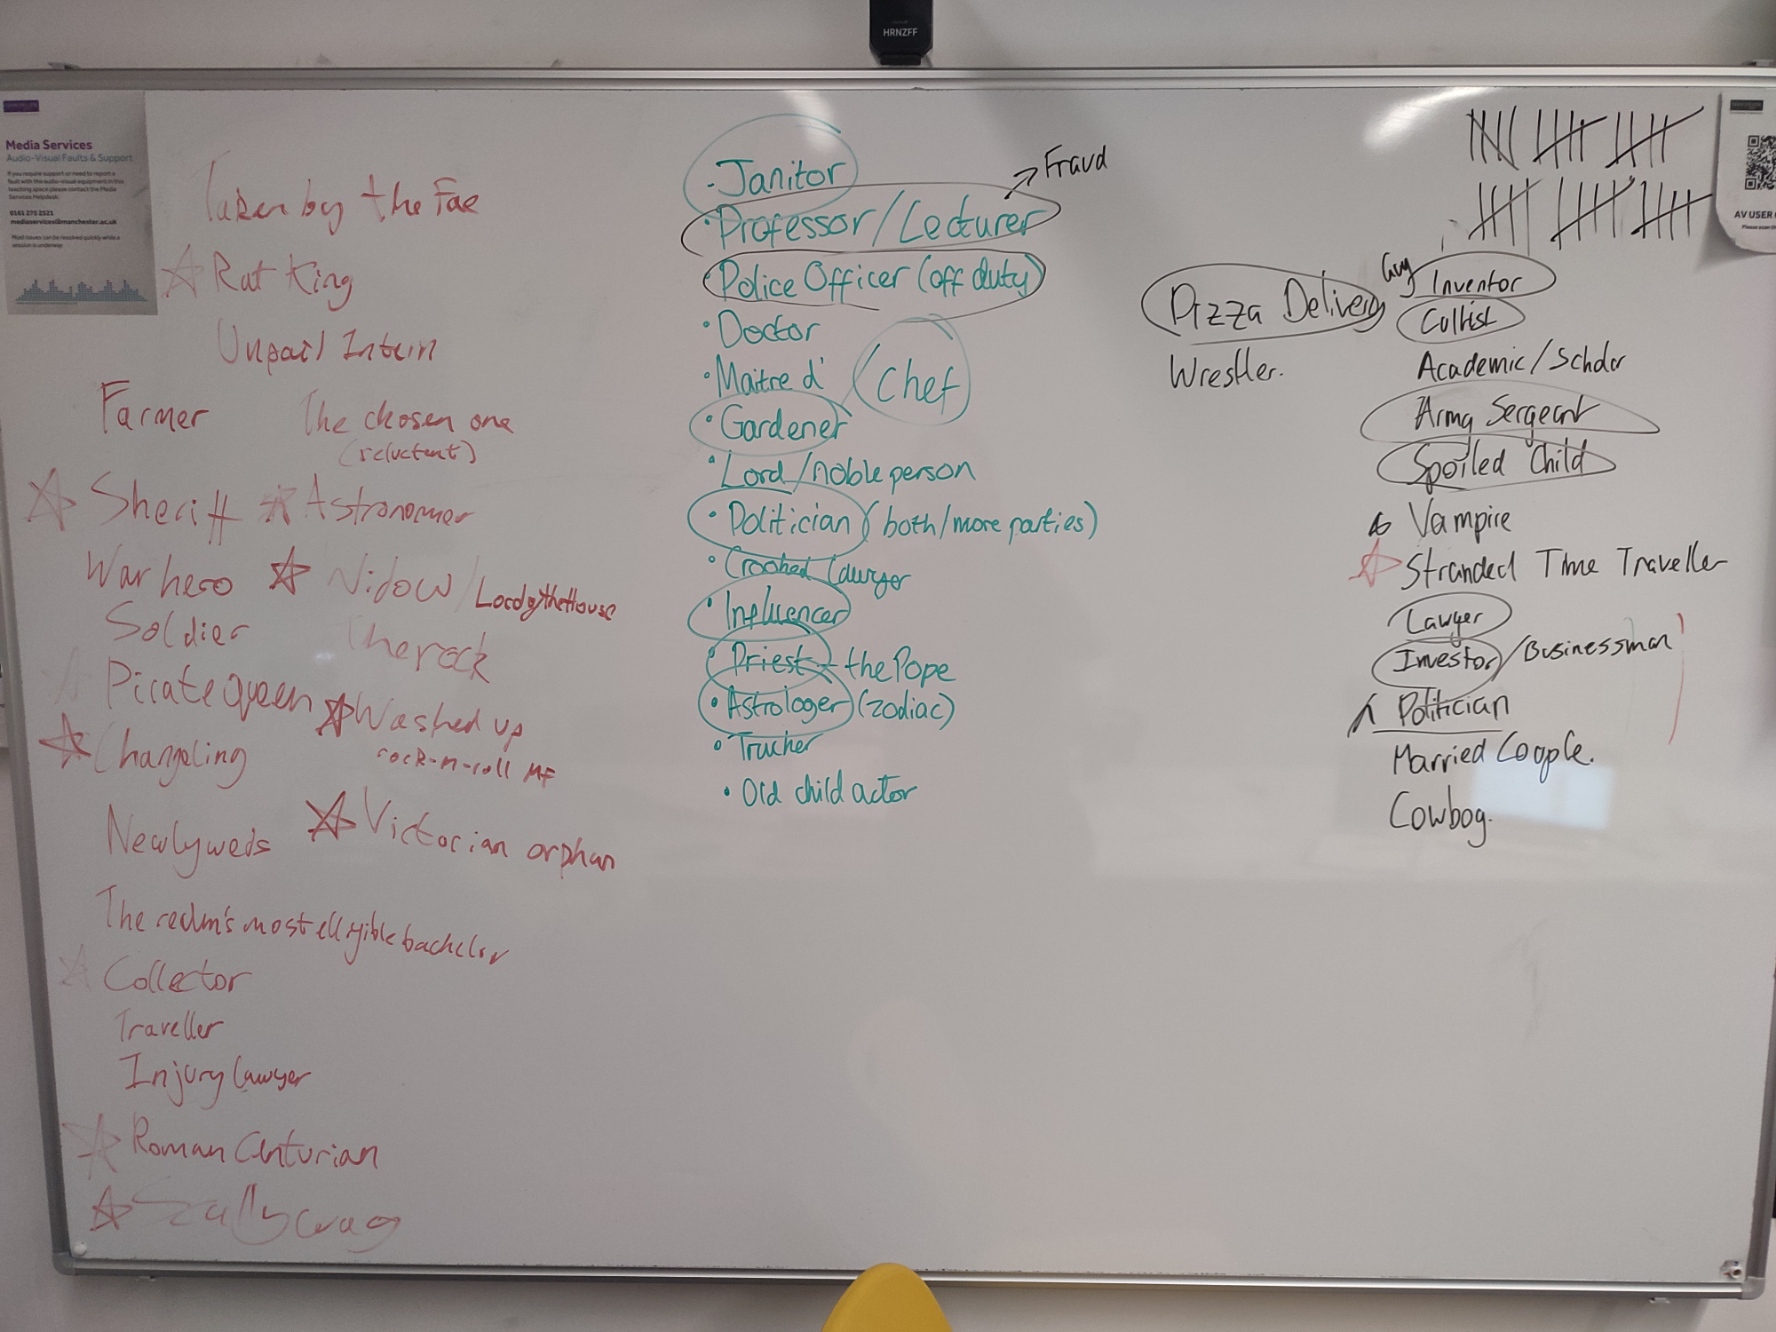 HRNZFF
Media Services
Audio-Visual Faults & Support
If you require support or need to report a
fault with the audio-visual equipment in this
teaching space please contact the Media
Services Helpdesk.
0161 275 2521
mediaservices@manchester.ac.uk
Most issues can be resolved quickly while a
session is underway.
AV USER
Taken by the Fae
Rat King
Unpail Intern
Farmer
The chosen one
(reluctent)
Sheriff
Astronomer
War hero
Widow/Lordofthehouse
Soldier
therock
Pirate queen
Washed up
rock-n-roll MF
Changeling
Newlyweds
Victorian orphan
The realm's most elligible bachelor
Collector
Traveller
Injury lawyer
Roman Centurian
Scallywag
· Janitor
Fraud
· Professor/Lecturer
· Police Officer (off duty)
· Doctor
· Maitre d'
Chef
· Gardener
· Lord/noble person
· Politician (both/more parties)
· Crooked lawyer
· Influencer
· Priest the Pope
· Astrologer (zodiac)
· Trucker
· Old child actor
Pizza Delivery Guy
Wrestler.
Inventor
Cultist
Academic/Scholar
Army Sergeant
Spoiled Child
Vampire
Stranded Time Traveller
Lawyer
Investor/Businessman
Politician
Married Couple.
Cowboy.